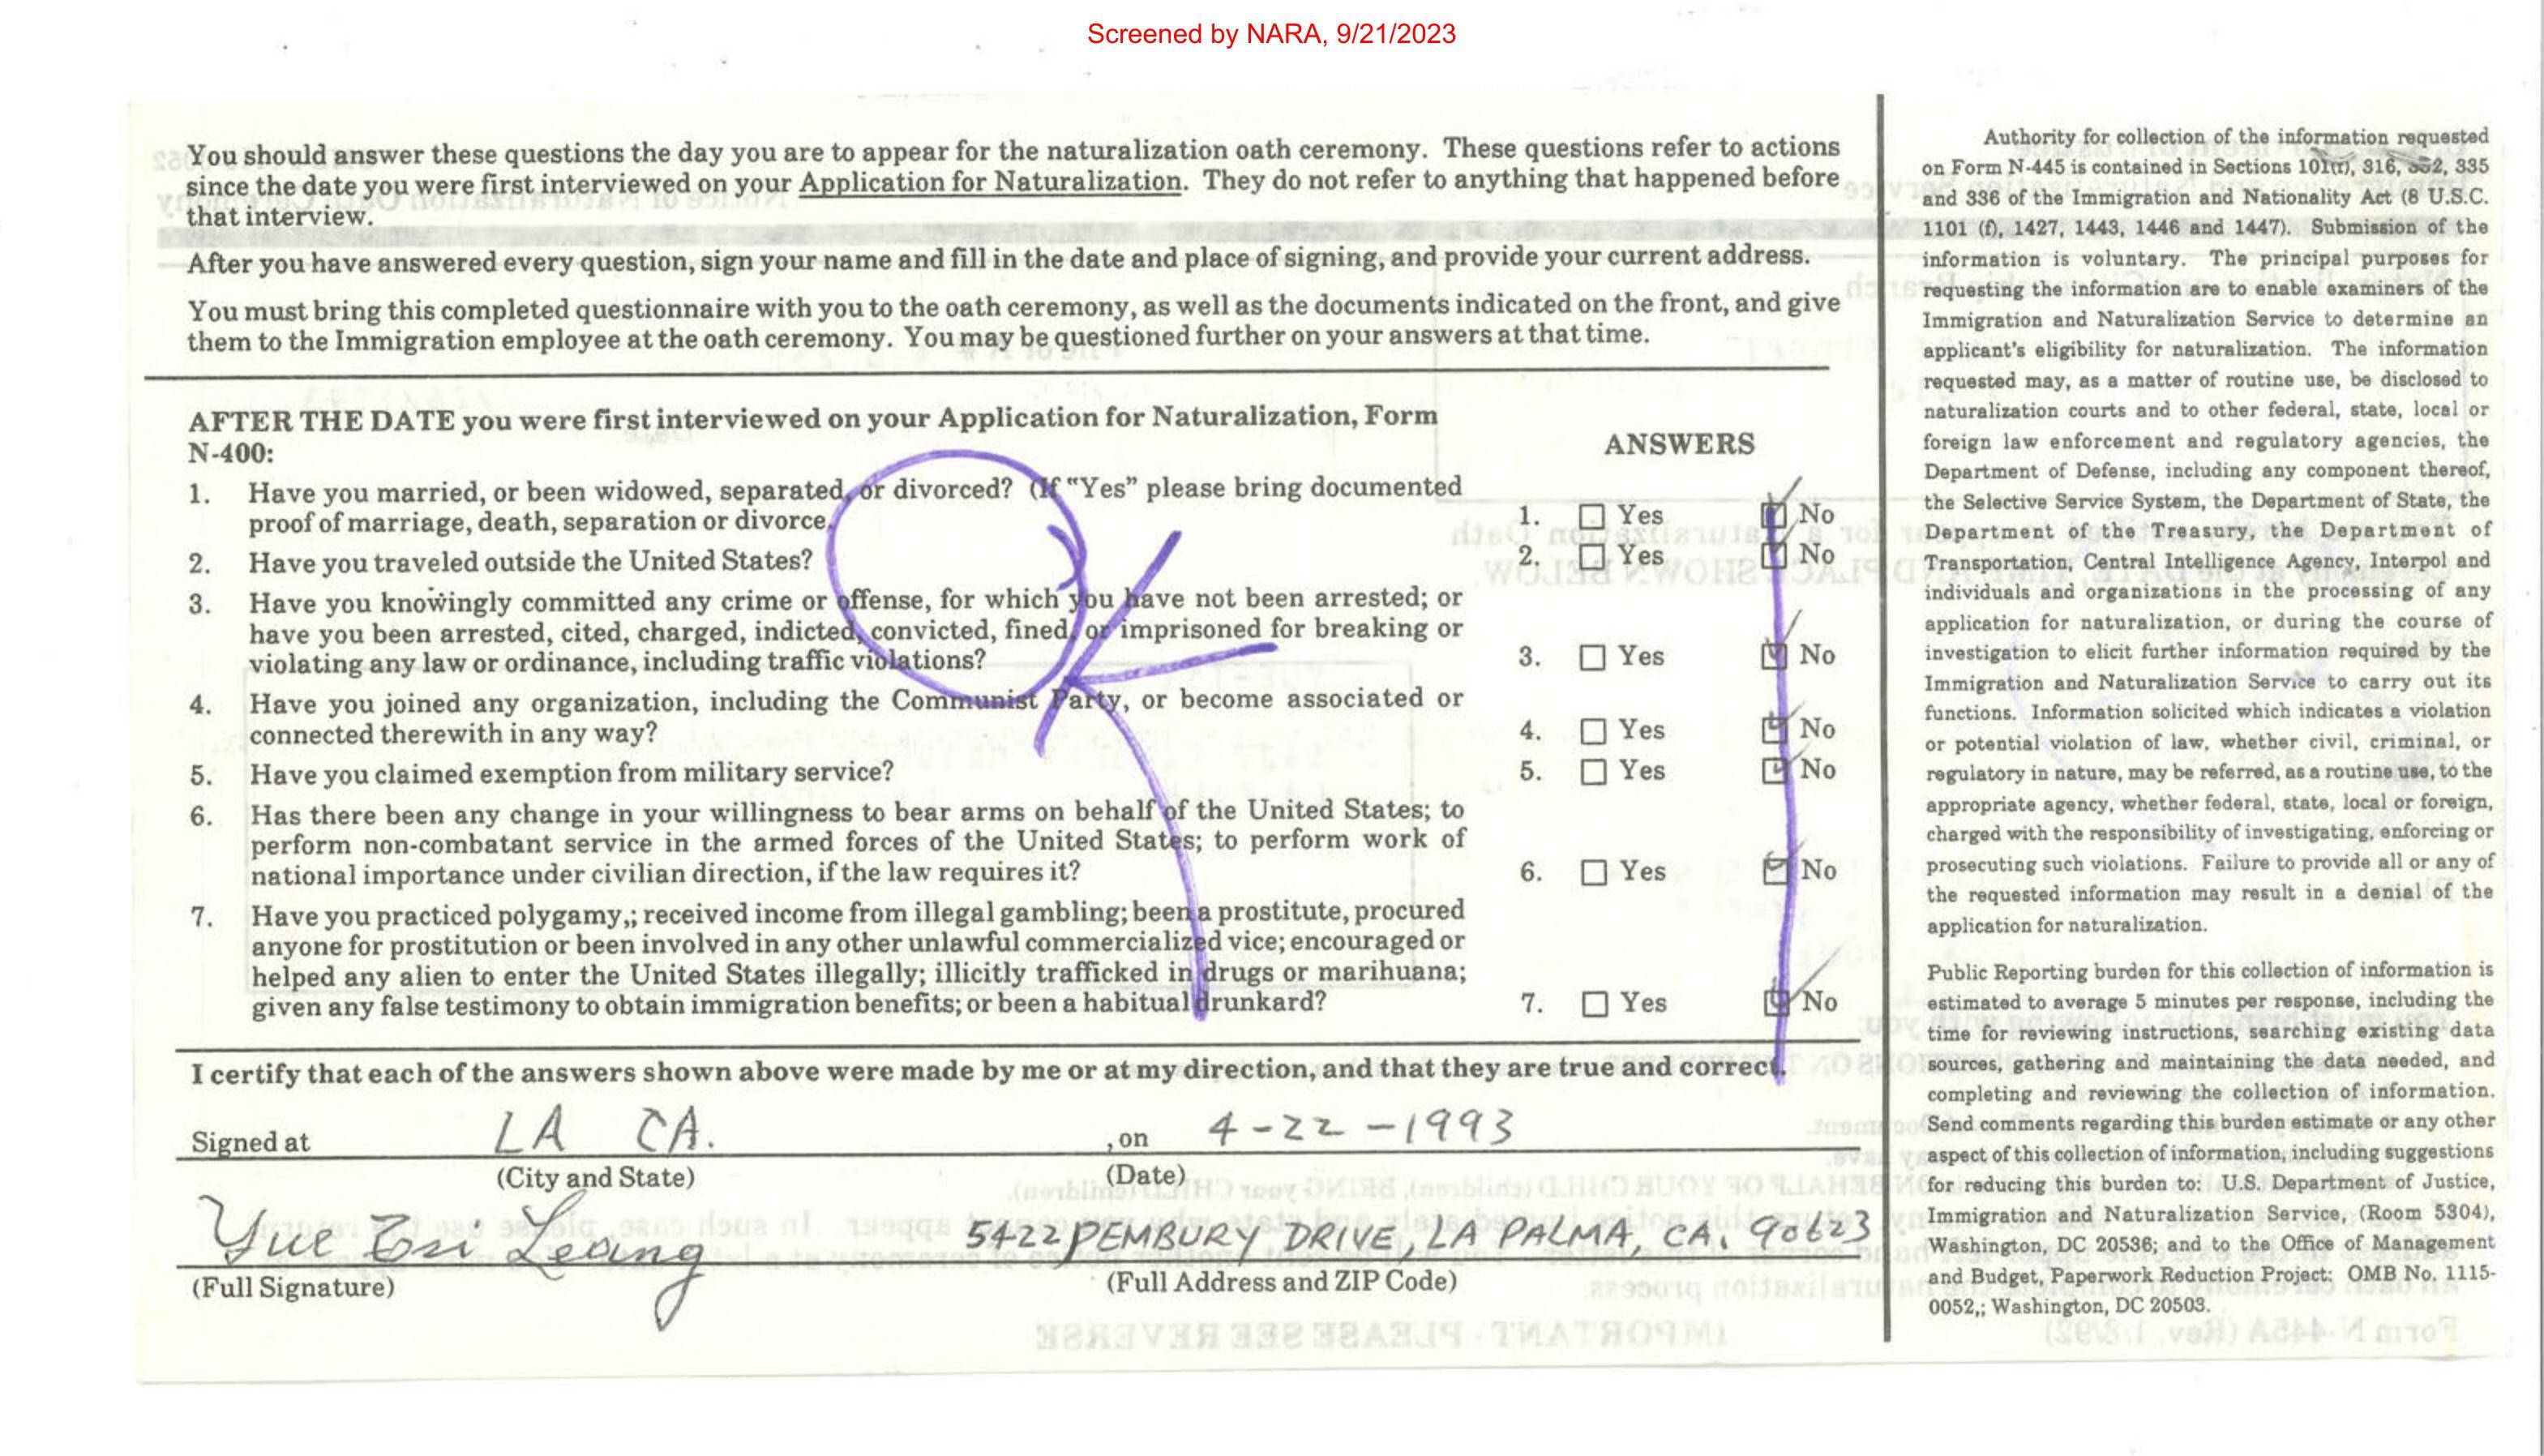 Screened by NARA, 9/21/2023
You should answer these questions the day you are to appear for the naturalization oath ceremony. These questions refer to actions
since the date you were first interviewed on your Application for Naturalization. They do not refer to anything that happened before
that interview.
After you have answered every question, sign your name and fill in the date and place of signing, and provide your current address.
You must bring this completed questionnaire with you to the oath ceremony, as well as the documents indicated on the front, and give
them to the Immigration employee at the oath ceremony. You may be questioned further on your answers at that time.
AFTER THE DATE you were first interviewed on your Application for Naturalization, Form
N-400:
ANSWERS
1. Have you married, or been widowed, separated, or divorced? (If "Yes" please bring documented
proof of marriage, death, separation or divorce.
1. Yes No
2. Have you traveled outside the United States?
2. Yes No
3. Have you knowingly committed any crime or offense, for which you have not been arrested; or
have you been arrested, cited, charged, indicted, convicted, fined, or imprisoned for breaking or
violating any law or ordinance, including traffic violations?
3. Yes No
4. Have you joined any organization, including the Communist Party, or become associated or
connected therewith in any way?
4. Yes No
5. Have you claimed exemption from military service?
5. Yes No
6. Has there been any change in your willingness to bear arms on behalf of the United States; to
perform non-combatant service in the armed forces of the United States; to perform work of
national importance under civilian direction, if the law requires it?
6. Yes No
7. Have you practiced polygamy,; received income from illegal gambling; been a prostitute, procured
anyone for prostitution or been involved in any other unlawful commercialized vice; encouraged or
helped any alien to enter the United States illegally; illicitly trafficked in drugs or marihuana;
given any false testimony to obtain immigration benefits; or been a habitual drunkard?
7. Yes No
OK
I certify that each of the answers shown above were made by me or at my direction, and that they are true and correct.
Signed at LA CA. , on 4-22-1993
(City and State) (Date)
Yue Tsi Leang 5422 PEMBURY DRIVE, LA PALMA, CA. 90623
(Full Signature) (Full Address and ZIP Code)
Authority for collection of the information requested
on Form N-445 is contained in Sections 101(f), 316, 332, 335
and 336 of the Immigration and Nationality Act (8 U.S.C.
1101 (f), 1427, 1443, 1446 and 1447). Submission of the
information is voluntary. The principal purposes for
requesting the information are to enable examiners of the
Immigration and Naturalization Service to determine an
applicant's eligibility for naturalization. The information
requested may, as a matter of routine use, be disclosed to
naturalization courts and to other federal, state, local or
foreign law enforcement and regulatory agencies, the
Department of Defense, including any component thereof,
the Selective Service System, the Department of State, the
Department of the Treasury, the Department of
Transportation, Central Intelligence Agency, Interpol and
individuals and organizations in the processing of any
application for naturalization, or during the course of
investigation to elicit further information required by the
Immigration and Naturalization Service to carry out its
functions. Information solicited which indicates a violation
or potential violation of law, whether civil, criminal, or
regulatory in nature, may be referred, as a routine use, to the
appropriate agency, whether federal, state, local or foreign,
charged with the responsibility of investigating, enforcing or
prosecuting such violations. Failure to provide all or any of
the requested information may result in a denial of the
application for naturalization.
Public Reporting burden for this collection of information is
estimated to average 5 minutes per response, including the
time for reviewing instructions, searching existing data
sources, gathering and maintaining the data needed, and
completing and reviewing the collection of information.
Send comments regarding this burden estimate or any other
aspect of this collection of information, including suggestions
for reducing this burden to: U.S. Department of Justice,
Immigration and Naturalization Service, (Room 5304),
Washington, DC 20536; and to the Office of Management
and Budget, Paperwork Reduction Project: OMB No. 1115-
0052,; Washington, DC 20503.